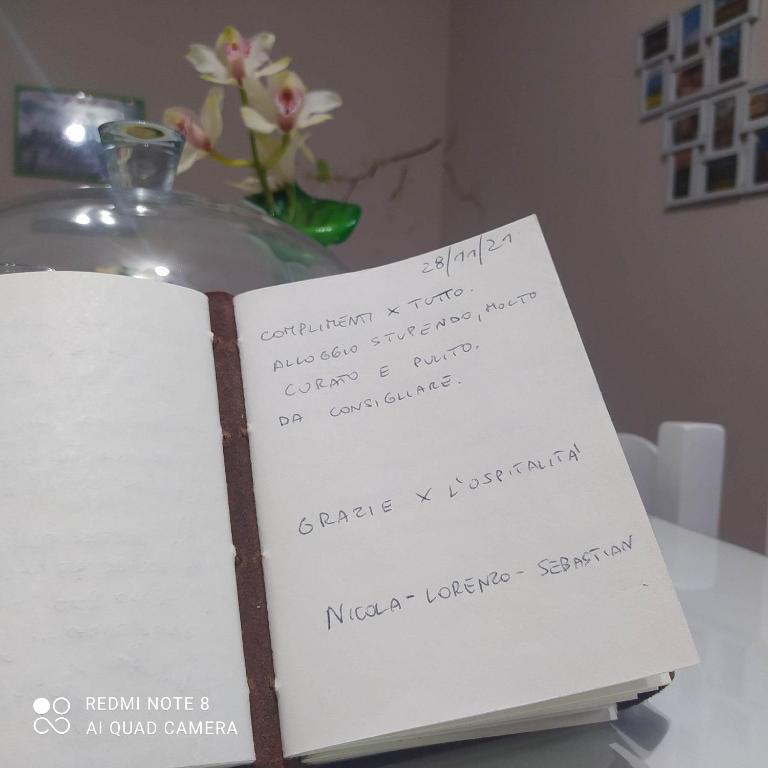 28/11/21
COMPLIMENTI X TUTTO.
ALLOGGIO STUPENDO, MOLTO
CURATO E PULITO.
DA CONSIGLIARE.
GRAZIE X L'OSPITALITA'
NICOLA - LORENZO - SEBASTIAN
REDMI NOTE 8
AI QUAD CAMERA